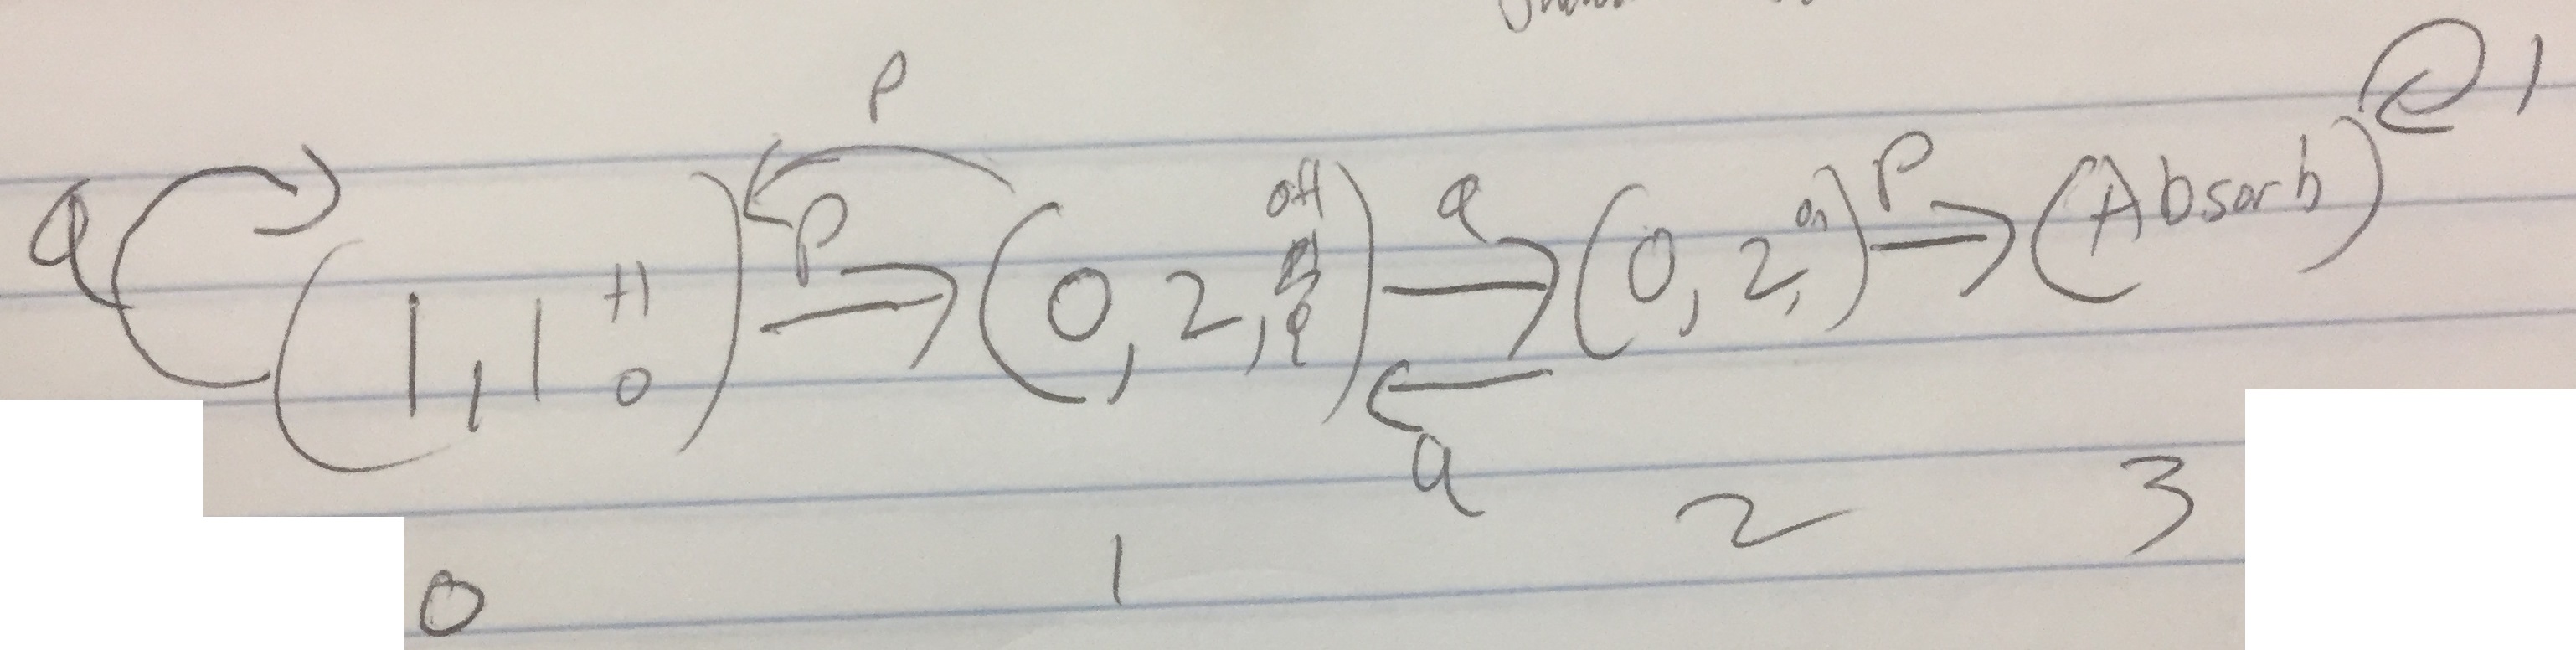 p
q (1,1 +1 0) p (0,2, off) q (0,2, on) p (Absorb) 1
q
0 1 2 3